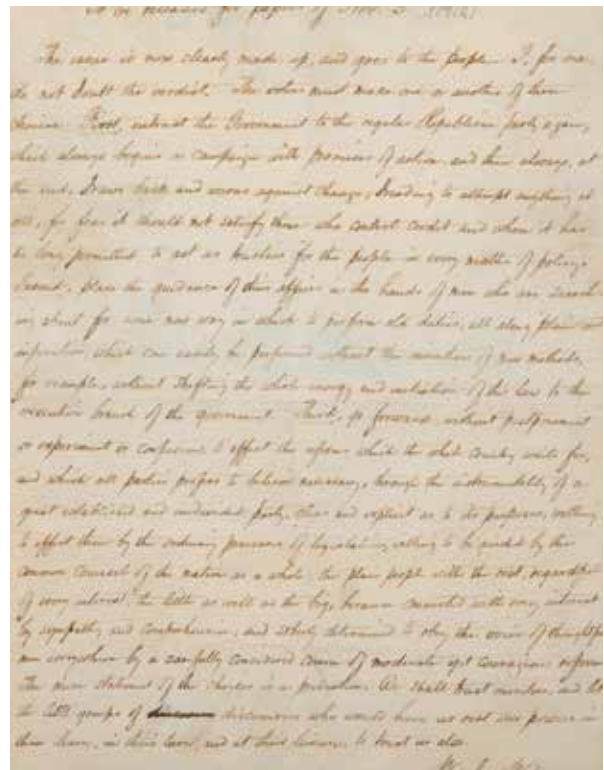 to be released for papers of Nov. 3 1912
The issue is now clearly made up, and goes to the people. I, for one
do not doubt the verdict. The voters must make one or another of three
choices. First, entrust the Government to the regular Republican party again,
which always begins a campaign with promises of action and then always, at
the end, draws back and warns against change, dreading to attempt anything at
all, for fear it should not satisfy those who control credit and whom it has
so long permitted to act as trustees for the people in every matter of policy.
Second, place the guidance of their affairs in the hands of men who are search-
ing about for some new way in which to perform old duties, all along plain
which can easily be performed without the invention of new methods,
for example, without shifting the whole energy and initiative of the law to the
executive branch of the government. Third, go forward, without postponement
or experiment or confusion to effect the reforms which the whole Country waits for,
and which all parties profess to believe necessary, through the instrumentality of a
great established and undivided party, clear and explicit as to its purposes, willing
to effect them by the ordinary processes of legislation, willing to be guided by the
common counsel of the nation as a whole, the plain people with the rest, regardful
of every interest, the little as well as the big, because connected with every interest
by sympathy and comprehension, and wholly determined to obey the voice of thoughtful
men everywhere by a carefully considered course of moderate yet courageous reform.
The mere statement of the choices is a prediction. We shall trust ourselves, and let
the little groups of who would have us rest our power in
their hands, in their and at their to trust us also.